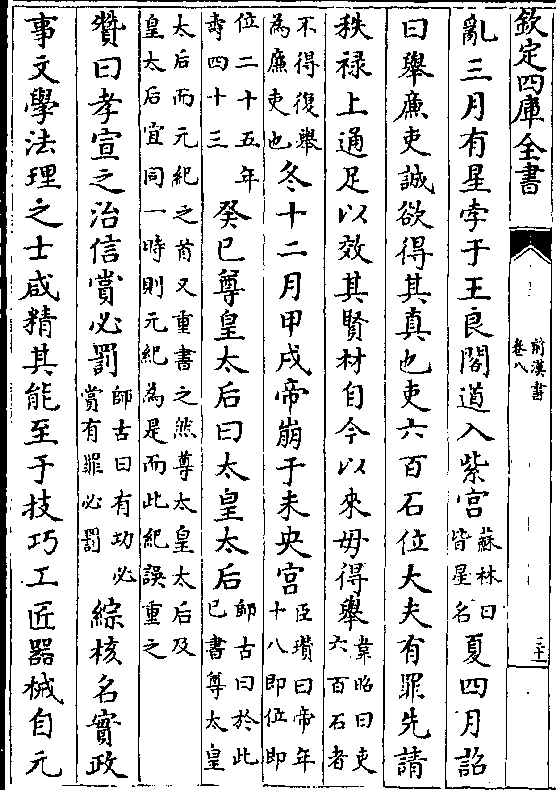 欽定四庫全書
前漢書
卷八
亂三月有星孛于王良閣道入紫宫蘇林曰皆星名夏四月詔
曰舉廉吏誠欲得其真也吏六百石位大夫有罪先請
秩禄上通足以效其賢材自今以來毋得舉韋昭曰吏六百石者
不得復舉為廉吏也冬十二月甲戌帝崩于未央宮臣瓚曰帝年十八即位即
位二十五年壽四十三癸巳尊皇太后曰太皇太后師古曰於此已書尊太皇
太后而元紀之首又重書之然尊太皇太后及皇太后宜同一時則元紀為是而此紀誤重之
贊曰孝宣之治信賞必罰師古曰有功必賞有罪必罰綜核名實政
事文學法理之士咸精其能至于技巧工匠器械自元